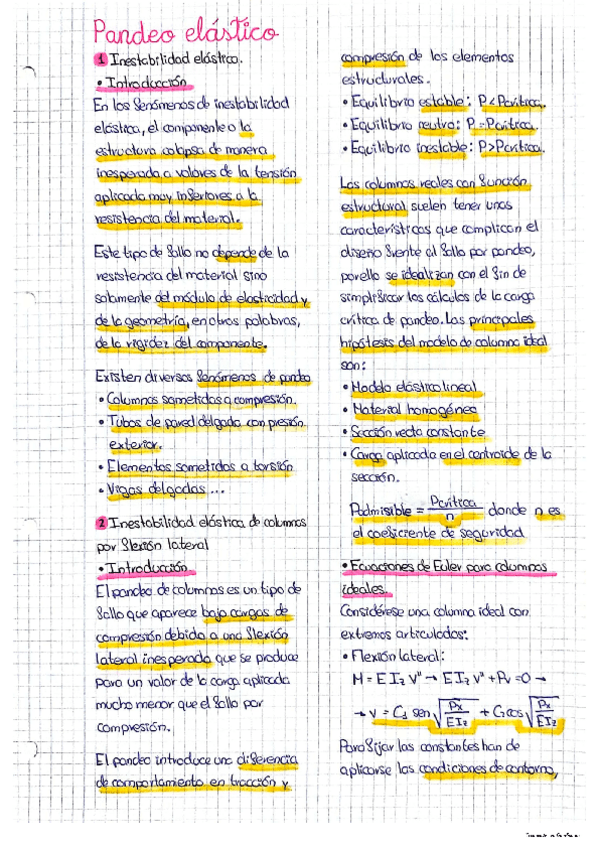 Pandeo elástico
1 Inestabilidad elástica.
• Introducción
En los fenómenos de inestabilidad
elástica, el componente o la
estructura colapsa de manera
inesperada a valores de la tensión
aplicada muy inferiores a la
resistencia del material.
Este tipo de fallo no depende de la
resistencia del material sino
solamente del módulo de elasticidad y
de la geometría, en otras palabras,
de la rigidez del componente.
Existen diversos fenómenos de pandeo
• Columnas sometidas a compresión.
• Tubos de pared delgada con presión
exterior.
• Elementos sometidos a torsión
• Vigas delgadas ...
2 Inestabilidad elástica de columnas
por flexión lateral
• Introducción
El pandeo de columnas es un tipo de
fallo que aparece bajo cargas de
compresión debido a una flexión
lateral inesperada que se produce
para un valor de la carga aplicada
mucho menor que el fallo por
compresión.
El pandeo introduce una diferencia
de comportamiento en tracción y
compresión de los elementos
estructurales.
• Equilibrio estable: P<Pcrítica.
• Equilibrio neutro: P=Pcrítica.
• Equilibrio inestable: P>Pcrítica.
Las columnas reales con función
estructural suelen tener unas
características que complican el
diseño frente al fallo por pandeo,
por ello se idealizan con el fin de
simplificar los cálculos de la carga
crítica de pandeo. Las principales
hipótesis del modelo de columna ideal
son:
• Modelo elástico lineal
• Material homogéneo
• Sección recta constante
• Carga aplicada en el centroide de la
sección.
Padmisible = Pcrítica/n donde n es
el coeficiente de seguridad
• Ecuaciones de Euler para columnas
ideales.
Considérese una columna ideal con
extremos articulados:
• Flexión lateral:
M = E Iz v'' → E Iz v'' + Pv = 0 →
→ v = C1 sen √(Px/EIz) + C2 cos √(Px/EIz)
Para fijar las constantes han de
aplicarse las condiciones de contorno,